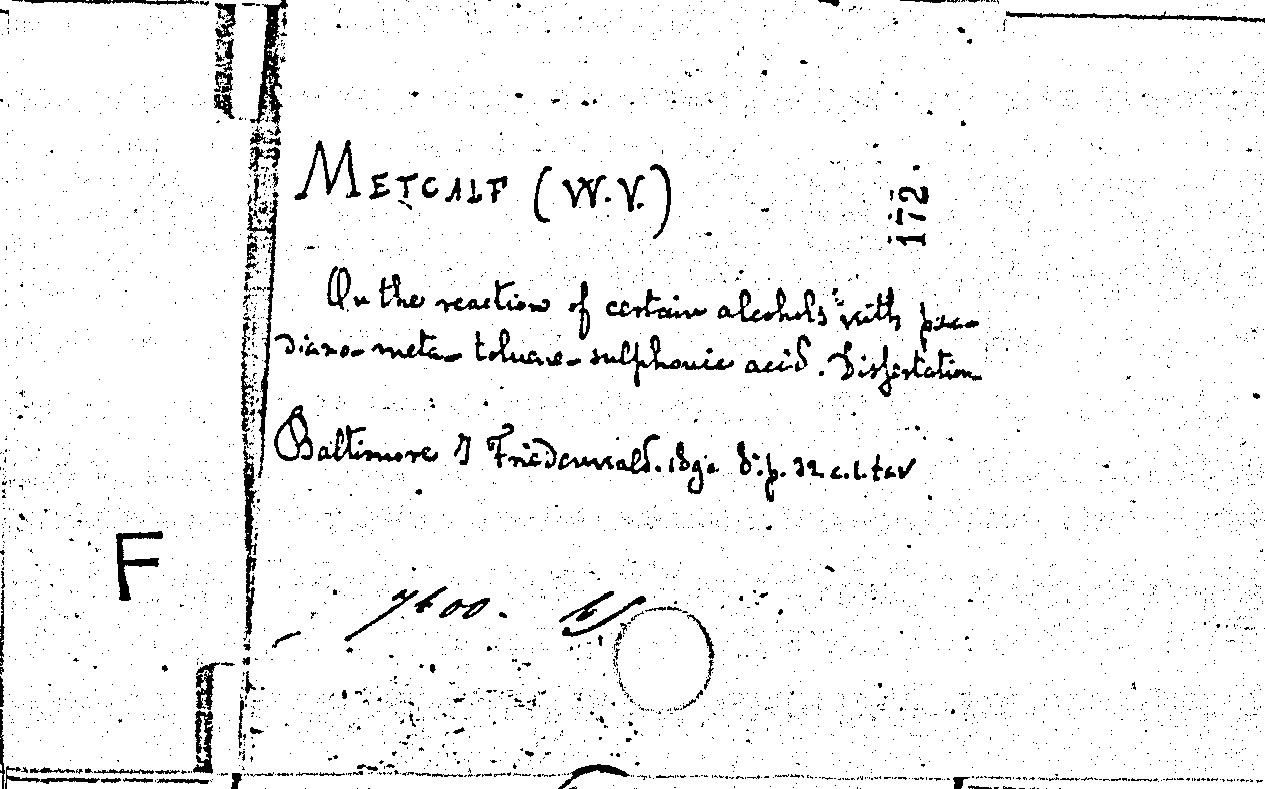 METCALF (W.V.)
172.
On the reaction of certain alcohols with para-
diazo-meta-toluene-sulphonic acid. Dissertation
Baltimore Friedenwald. 8°. p. 32. e. 1. tav
F
7600.